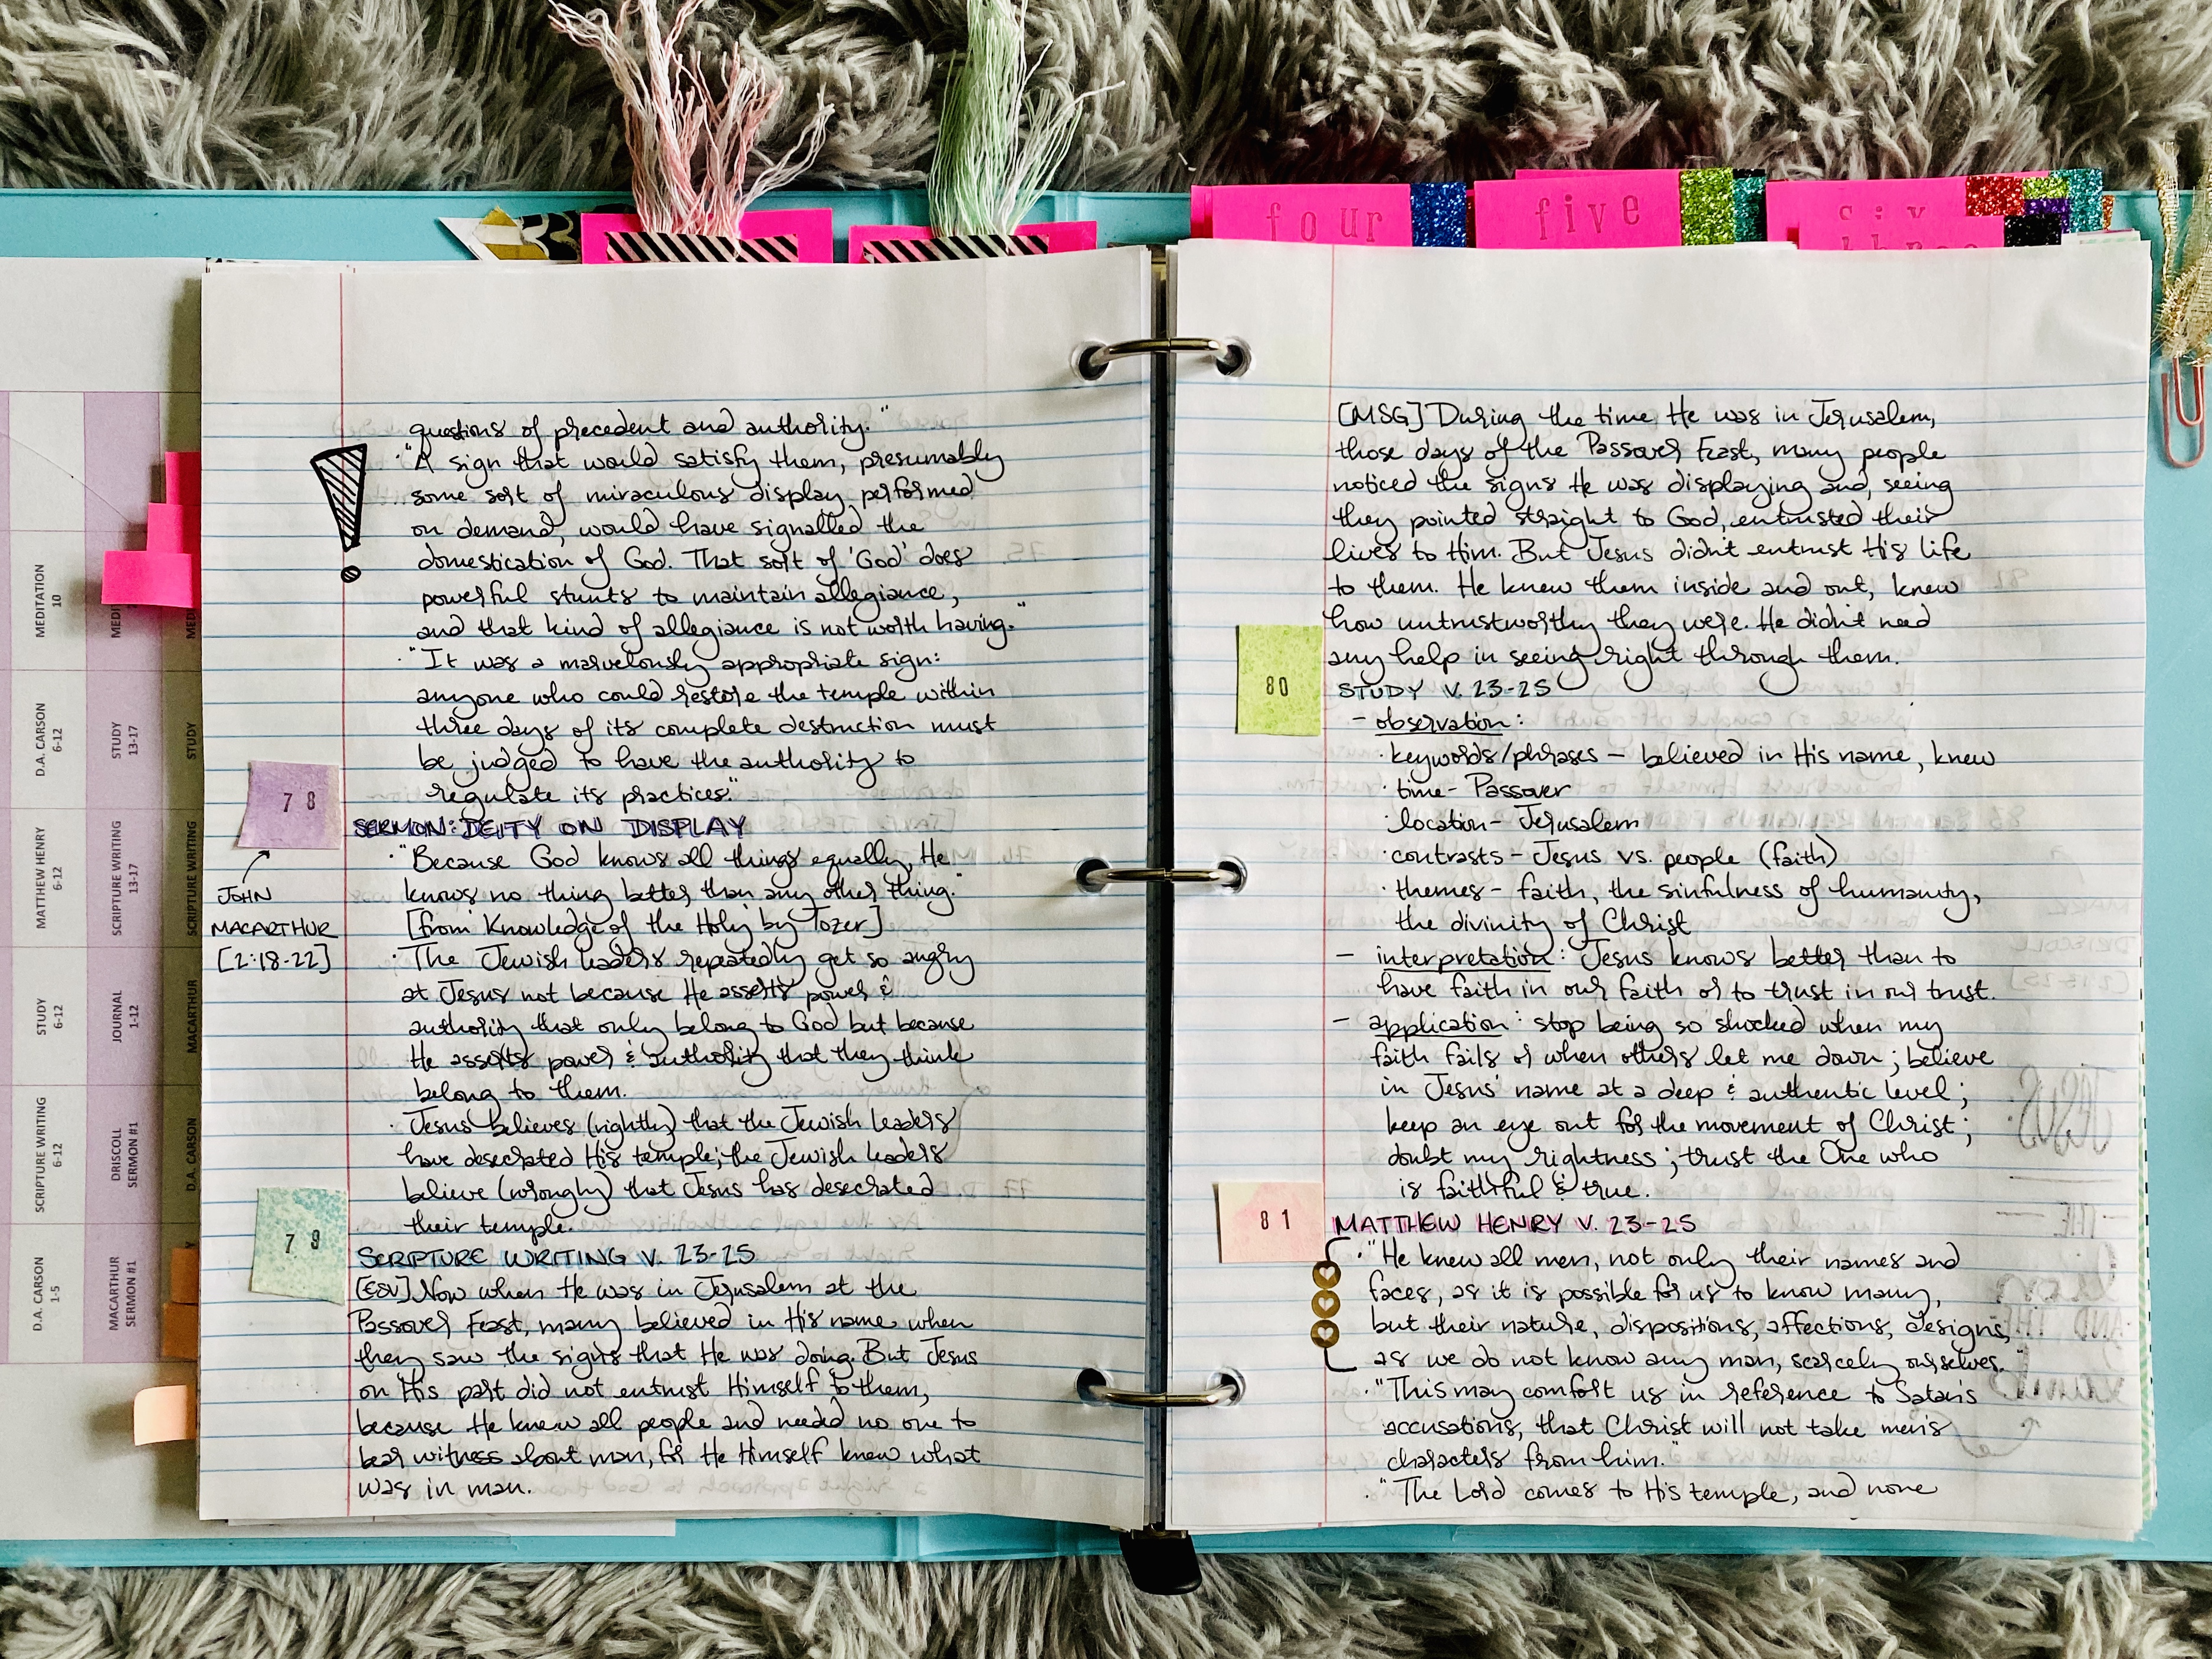 four
five
six
three
MEDITATION
10
D.A. CARSON
6-12
MATTHEW HENRY
6-12
STUDY
6-12
SCRIPTURE WRITING
6-12
D.A. CARSON
1-5
STUDY
13-17
SCRIPTURE WRITING
13-17
JOURNAL
1-12
DRISCOLL
SERMON #1
MACARTHUR
SERMON #1
STUDY
SCRIPTURE WRITING
MACARTHUR
D.A. CARSON
questions of precedent and authority."
· "A sign that would satisfy them, presumably
some sort of miraculous display performed
on demand, would have signalled the
domestication of God. That sort of 'God' does
powerful stunts to maintain allegiance,
and that kind of allegiance is not worth having."
· "It was a marvelously appropriate sign:
anyone who could restore the temple within
three days of its complete destruction must
be judged to have the authority to
regulate its practices."
78
SERMON: DEITY ON DISPLAY
JOHN
MACARTHUR
[2:18-22]
· "Because God knows all things equally, He
knows no thing better than any other thing."
[from Knowledge of the Holy by Tozer]
· The Jewish leaders repeatedly get so angry
at Jesus not because He asserts power &
authority that only belong to God but because
He asserts power & authority that they think
belong to them.
· Jesus believes (rightly) that the Jewish leaders
have desecrated His temple; the Jewish leaders
believe (wrongly) that Jesus has desecrated
their temple.
79
SCRIPTURE WRITING V. 23-25
[ESV] Now when He was in Jerusalem at the
Passover Feast, many believed in His name when
they saw the signs that He was doing. But Jesus
on His part did not entrust Himself to them,
because He knew all people and needed no one to
bear witness about man, for He Himself knew what
was in man.
[MSG] During the time He was in Jerusalem,
those days of the Passover Feast, many people
noticed the signs He was displaying and, seeing
they pointed straight to God, entrusted their
lives to Him. But Jesus didn't entrust His life
to them. He knew them inside and out, knew
how untrustworthy they were. He didn't need
any help in seeing right through them.
80
STUDY V. 23-25
- observation:
· keywords/phrases - believed in His name, knew
· time - Passover
· location - Jerusalem
· contrasts - Jesus vs. people (faith)
· themes - faith, the sinfulness of humanity,
the divinity of Christ
- interpretation: Jesus knows better than to
have faith in our faith or to trust in our trust.
- application: stop being so shocked when my
faith fails or when others let me down; believe
in Jesus' name at a deep & authentic level;
keep an eye out for the movement of Christ;
doubt my rightness; trust the One who
is faithful & true.
81
MATTHEW HENRY V. 23-25
· "He knew all men, not only their names and
faces, as it is possible for us to know many,
but their nature, dispositions, affections, designs,
as we do not know any man, scarcely ourselves."
· "This may comfort us in reference to Satan's
accusations, that Christ will not take men's
characters from him."
· "The Lord comes to His temple, and none